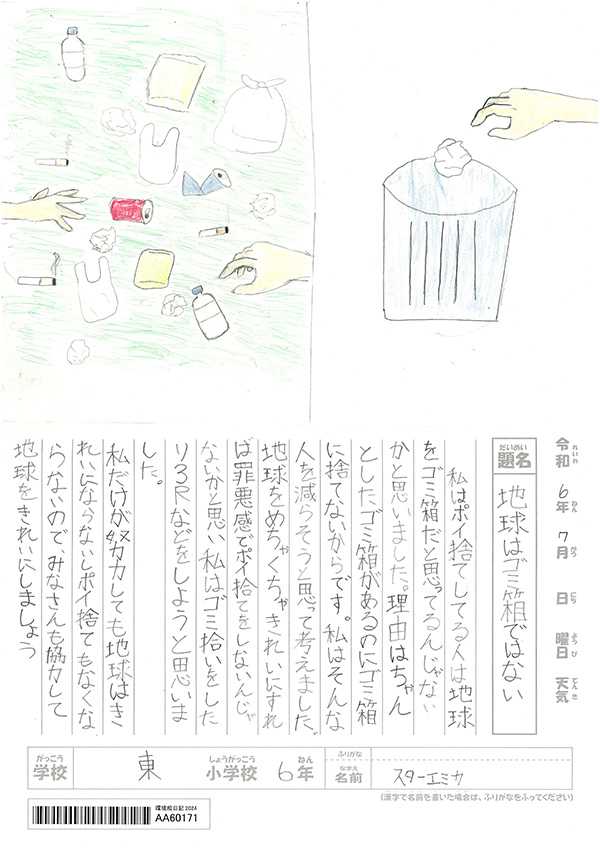 令和 6年 7月 日 曜日 天気
れいわ ねん がつ にち ようび てんき
だいめい
題名
地球はゴミ箱ではない
私はポイ捨てしてる人は地球
をゴミ箱だと思ってるんじゃない
かと思いました。理由はちゃん
としたゴミ箱があるのにゴミ箱
に捨てないからです。私はそんな
人を減らそうと思って考えました。
地球をめちゃくちゃきれいにすれ
ば罪悪感でポイ捨てをしないんじゃ
ないかと思い、私はゴミ拾いをした
り3Rなどをしようと思いま
した。
私だけが努力しても地球はき
れいにならないしポイ捨てもなくな
らないので、みなさんも協力して
地球をきれいにしましょう
がっこう しょうがっこう ねん
学校 東 小学校 6年
ふりがな
なまえ
名前 スターエミカ
(漢字で名前を書いた場合は、ふりがなをふってください)
環境絵日記2024
AA60171